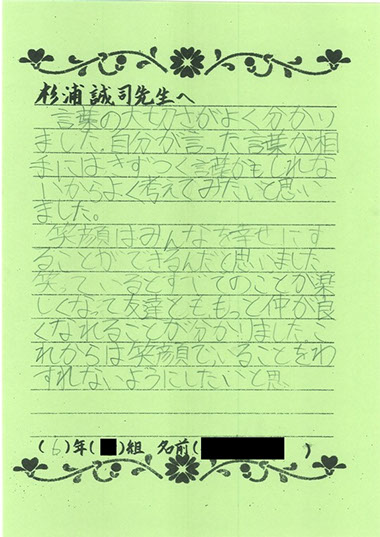 杉浦誠司先生へ
言葉の大切さがよく分かり
ました。自分が言った言葉が相
手にはきずつく言葉かもしれな
いからよく考えてみたいと思い
ました。
笑顔はみんなを幸せにす
ることができるんだと思いました
笑っているとすべてのことが楽
しくなって友達とももっと仲が良
くなれることが分かりました。こ
れからは笑顔でいることをわ
すれないようにしたいと思
(6)年( )組 名前( )